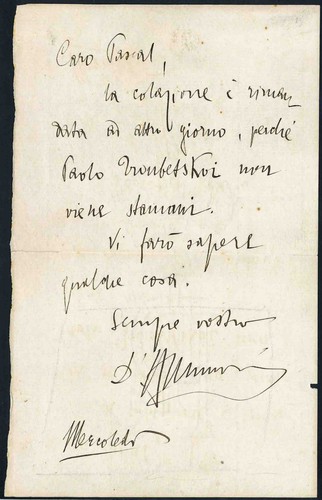 Caro Pascal,
la colazione è riman
data ad altro giorno, perché
Paolo Troubetzkoi non
viene stamani.
Vi farò sapere
qualche cosa.
Sempre vostro
D'Annunzio
Mercoledì